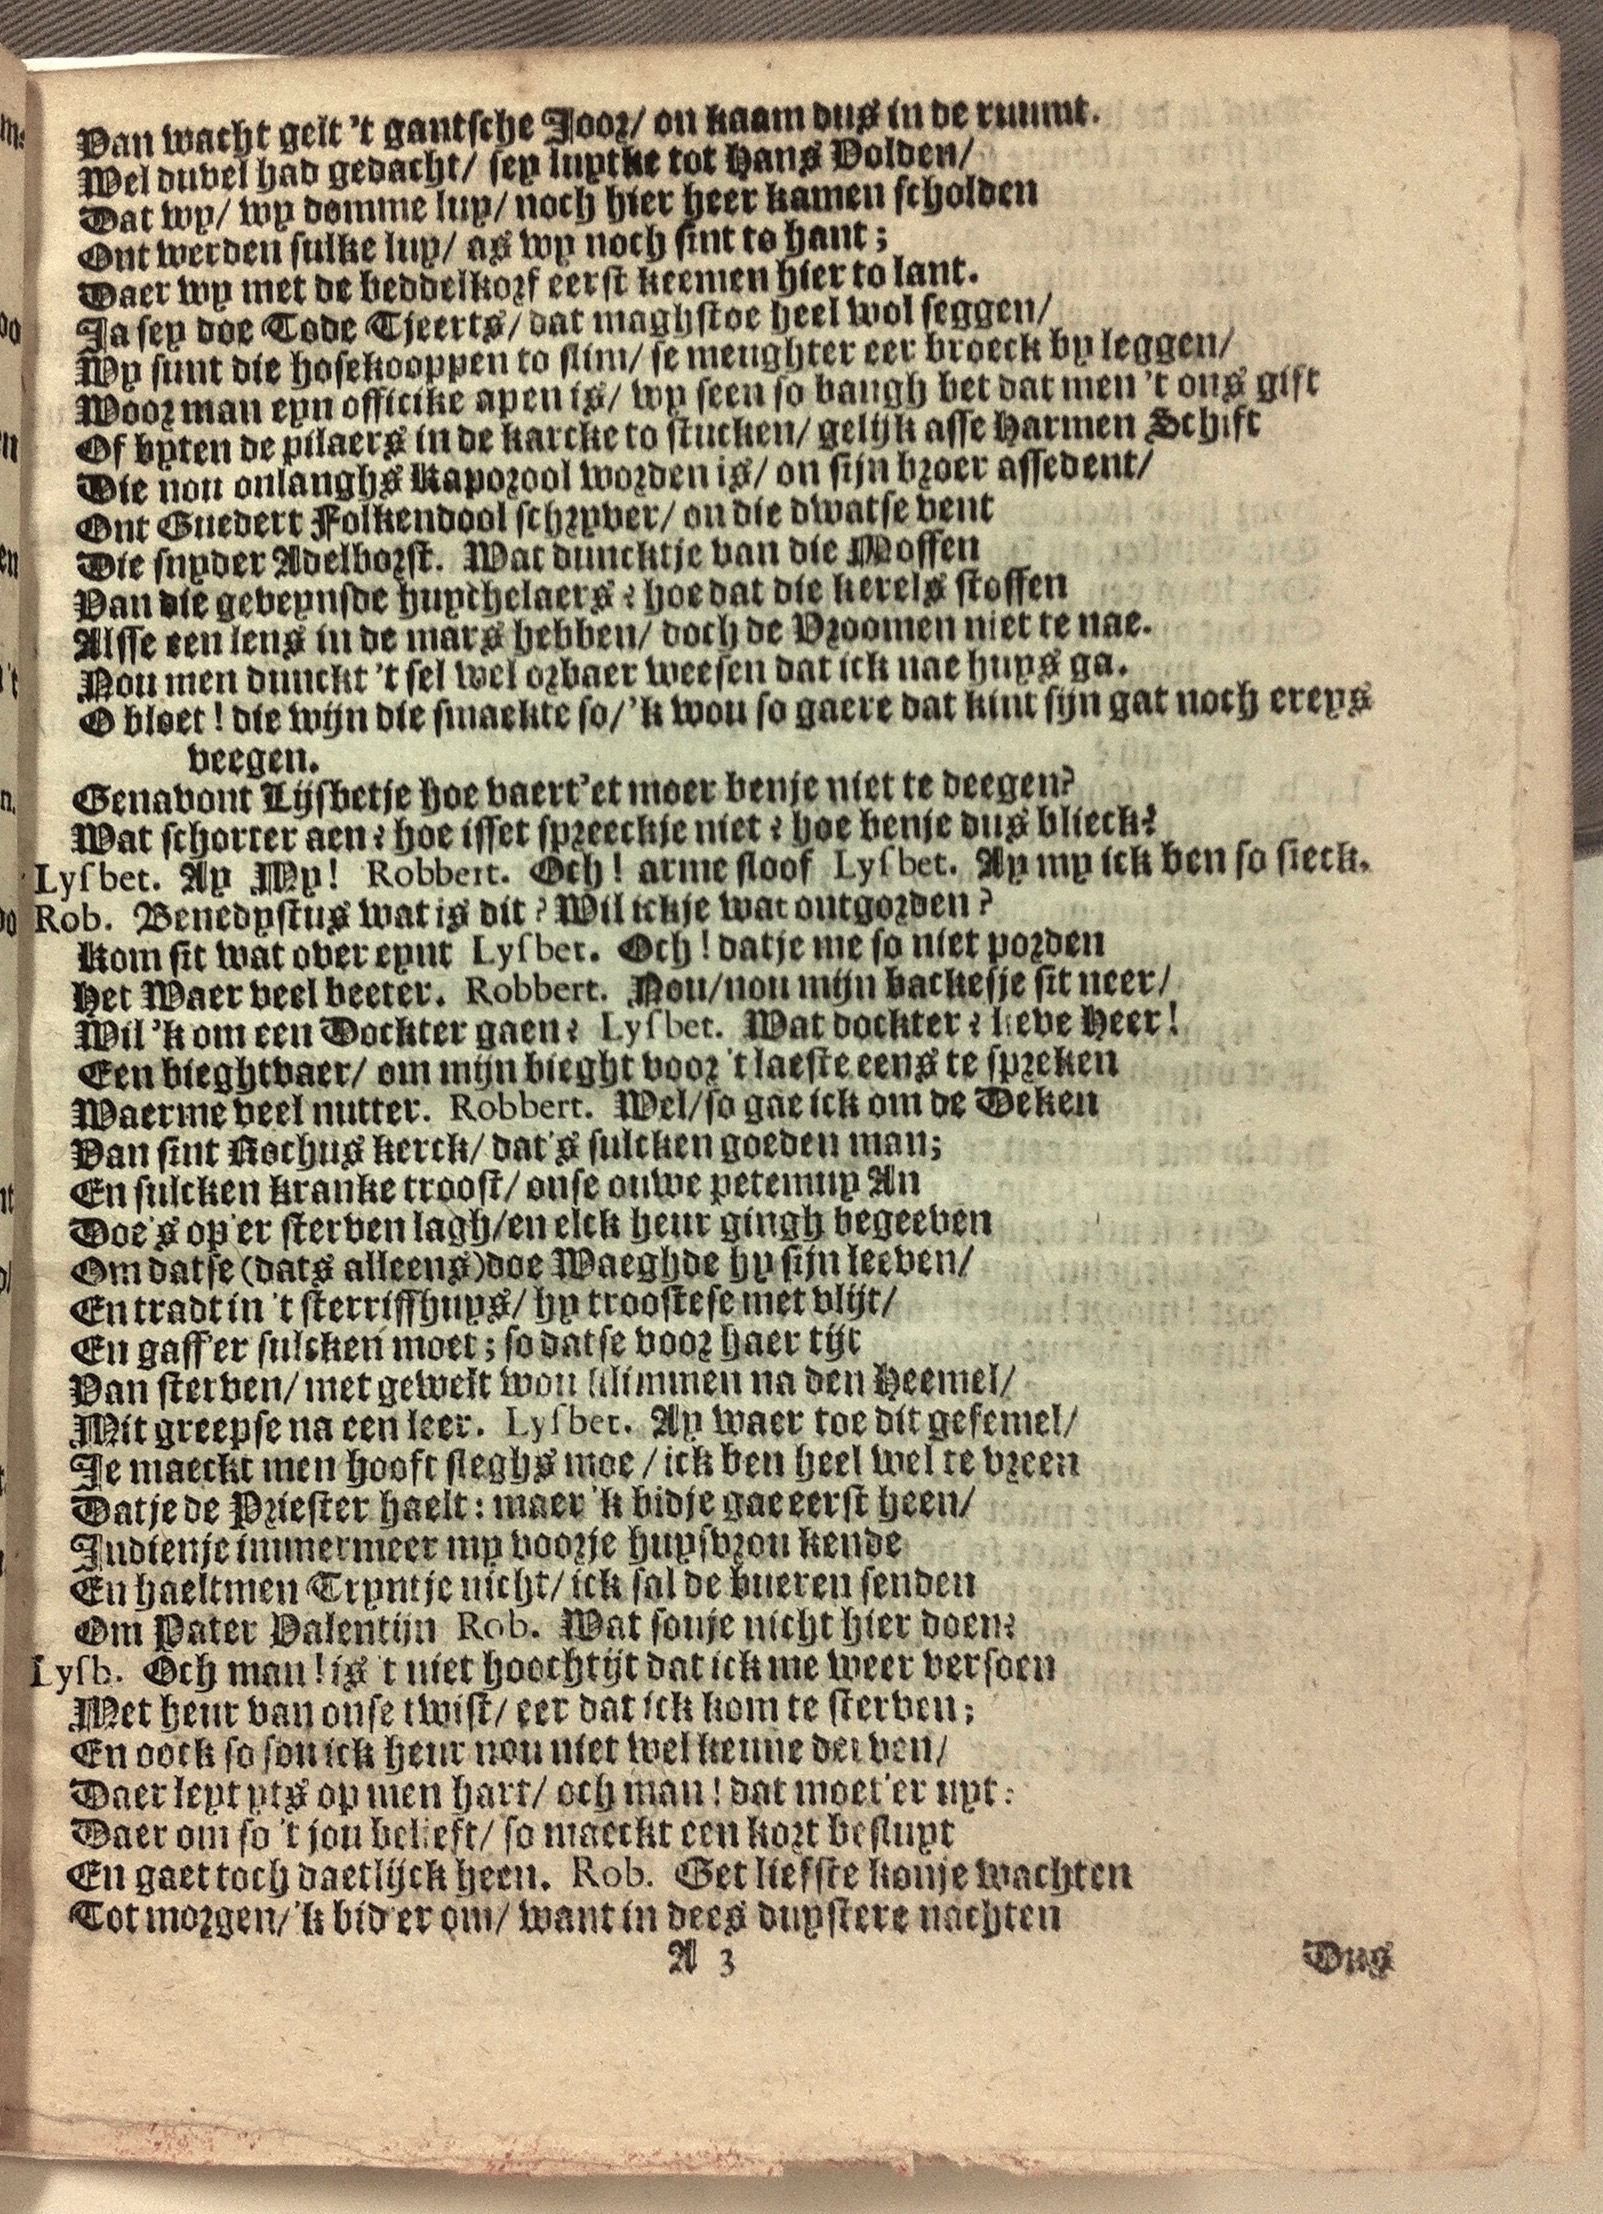 Van wacht gelt 't gantsche Joor/ on kaam dus in de ruumt.
Wel duvel had gedacht/ sey luytke tot Hans Volden/
Dat wy/ wy domme luy/ noch hier heer kamen scholden
Ont werden sulke luy/ as wy noch sint to hant;
Daer wy met de beddelkorf eerst keemen hier to lant.
Ja sey doe Tode Tjeerts/ dat maghstoe heel wol seggen/
Wy sunt die hosekooppen to slim/ se meughter eer broeck by leggen/
Woor man eyn officike apen is/ wy seen so bangh bet dat men 't ons gift
Of byten de pilaers in de karcke to stucken/ gelijk asse Harmen Schift
Die nou onlanghs Kaporool worden is/ on sijn broer assedent/
Ont Guedert Folkendool schryver/ on die dwatse vent
Die snyder Adelborst. Wat duncktje van die Moffen
Van die geveynsde huychelaers? hoe dat die kerels stoffen
Alsse een lens in de mars hebben/ doch de Vroomen niet te nae.
Nou men dunckt 't sel wel orbaer weesen dat ick nae huys ga.
O bloet! die wijn die smaekte so/ 'k wou so gaere dat kint sijn gat noch ereys
veegen.
Genavont Lijsbetje hoe vaert'et moer benje niet te deegen?
Wat schorter aen? hoe isset spreeckje niet? hoe benje dus blieck?
Lysbet. Ay My! Robbert. Och! arme sloof Lysbet. Ay my ick ben so sieck.
Rob. Benedystus wat is dit? Wil ickje wat ontgorden?
Kom sit wat over eynt Lysbet. Och! datje me so niet porden
Het Waer veel beeter. Robbert. Nou/ nou mijn backesje sit neer/
Wil 'k om een Dockter gaen? Lysbet. Wat dockter? lieve Heer!
Een bieghtvaer/ om mijn bieght voor 't laeste eens te spreken
Waerme veel nutter. Robbert. Wel/ so gae ick om de Deken
Van sint Rochus kerck/ dat's sulcken goeden man;
En sulcken kranke troost/ onse ouwe petemuy An
Doe's op'er sterven lagh/ en elck heur gingh begeeven
Om datse (dats alleens) doe Waeghde hy sijn leeven/
En tradt in 't sterriffhuys/ hy troostese met vlijt/
En gaff'er sulcken moet; so datse voor haer tijt
Van sterven/ met gewelt wou klimmen na den Heemel/
Mit greepse na een leer. Lysbet. Ay waer toe dit gefemel/
Je maeckt men hooft sleghs moe/ ick ben heel wel te vreen
Datje de Priester haelt: maer 'k bidje gae eerst heen/
Indienje immermeer my voorje huysvrou kende
En haeltmen Tryntje nicht/ ick sal de bueren senden
Om Pater Valentijn Rob. Wat souje nicht hier doen?
Lysb. Och man! is 't niet hoochtijt dat ick me weer versoen
Met heur van onse twist/ eer dat ick kom te sterven;
En oock so sou ick heur nou niet wel kenne derven/
Daer leyt yts op men hart/ och man! dat moet'er uyt:
Daer om so 't jou belieft/ so maeckt een kort besluyt
En gaet toch daetlijck heen. Rob. Get liefste konje wachten
Tot morgen/ 'k bid'er om/ want in dees duystere nachten
A 3
Dus